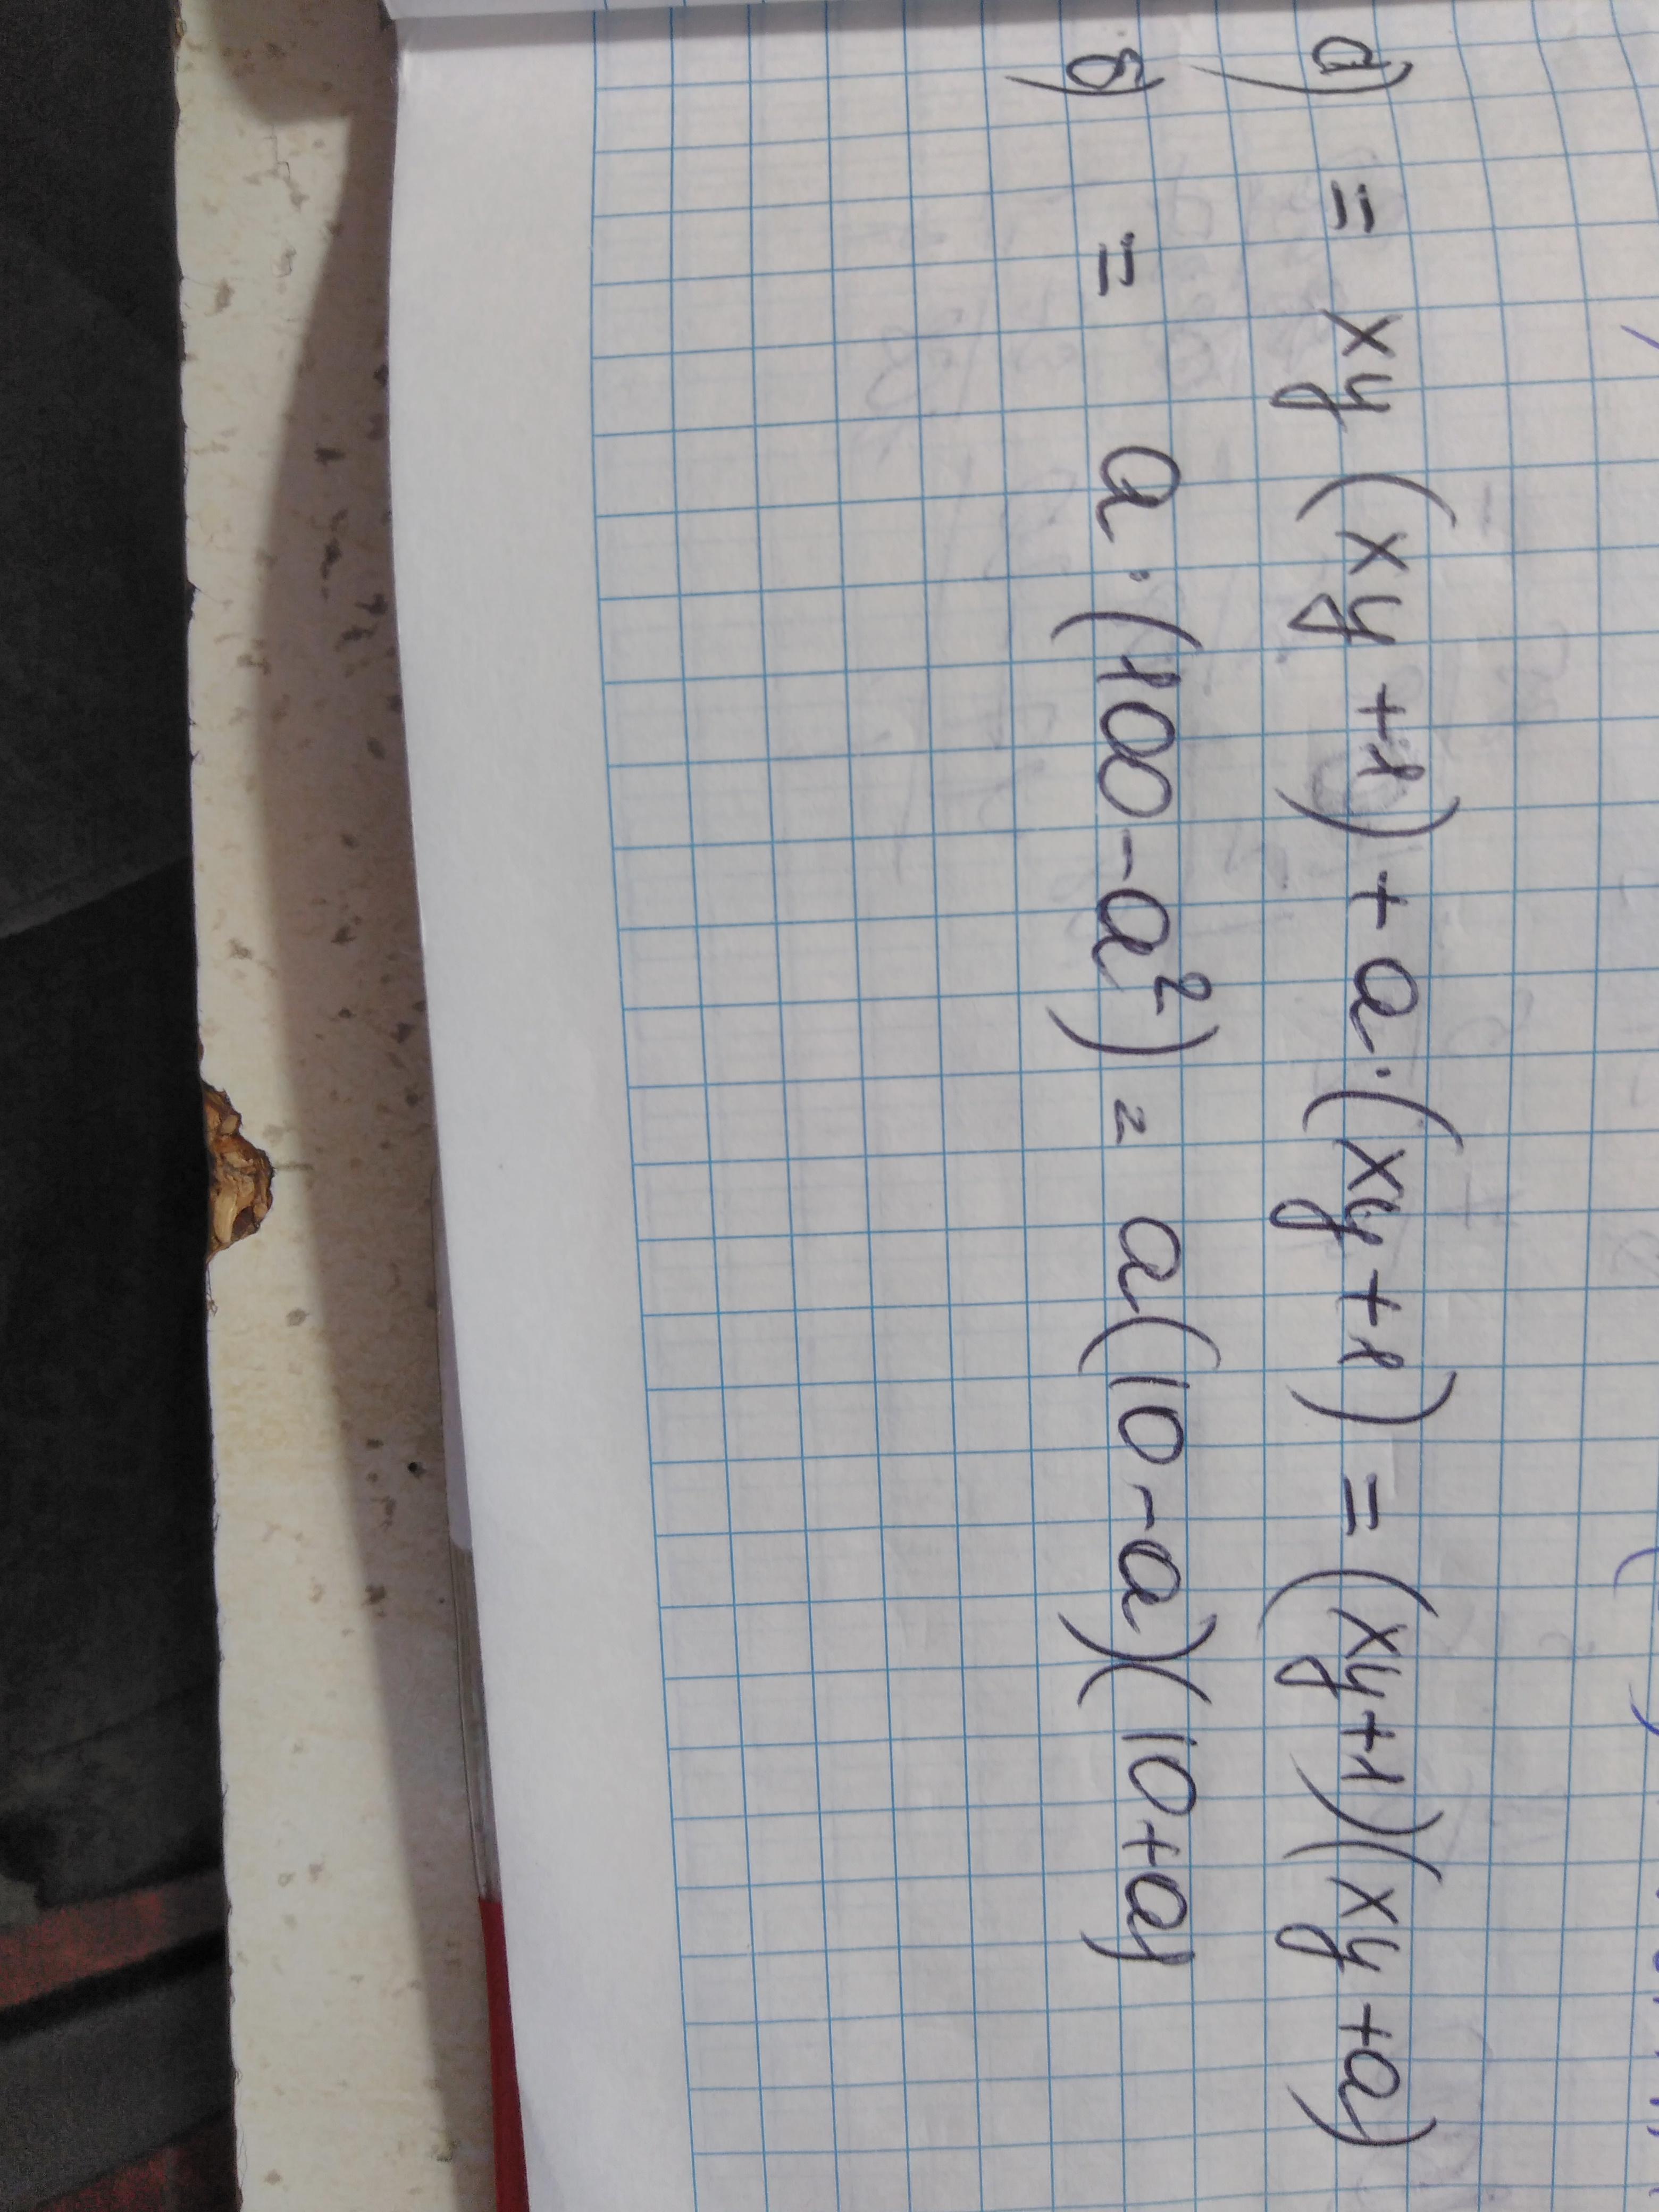 а) = xy (xy + 1) + a·(xy + 1) = (xy + 1)(xy + a)
б) = a·(100 - a²) = a(10 - a)(10 + a)